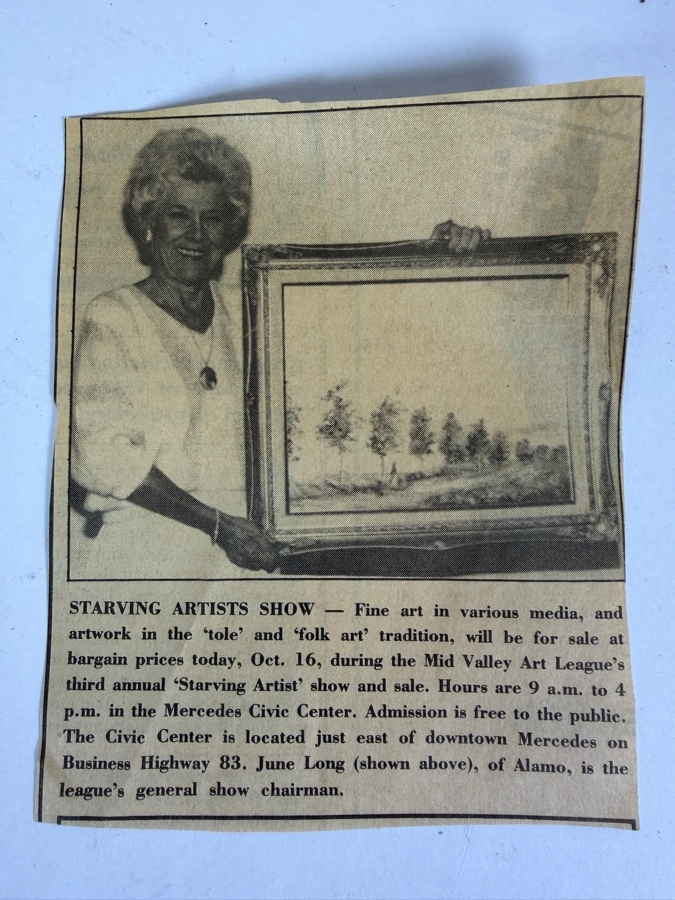 STARVING ARTISTS SHOW — Fine art in various media, and
artwork in the ‘tole’ and ‘folk art’ tradition, will be for sale at
bargain prices today, Oct. 16, during the Mid Valley Art League’s
third annual ‘Starving Artist’ show and sale. Hours are 9 a.m. to 4
p.m. in the Mercedes Civic Center. Admission is free to the public.
The Civic Center is located just east of downtown Mercedes on
Business Highway 83. June Long (shown above), of Alamo, is the
league’s general show chairman.